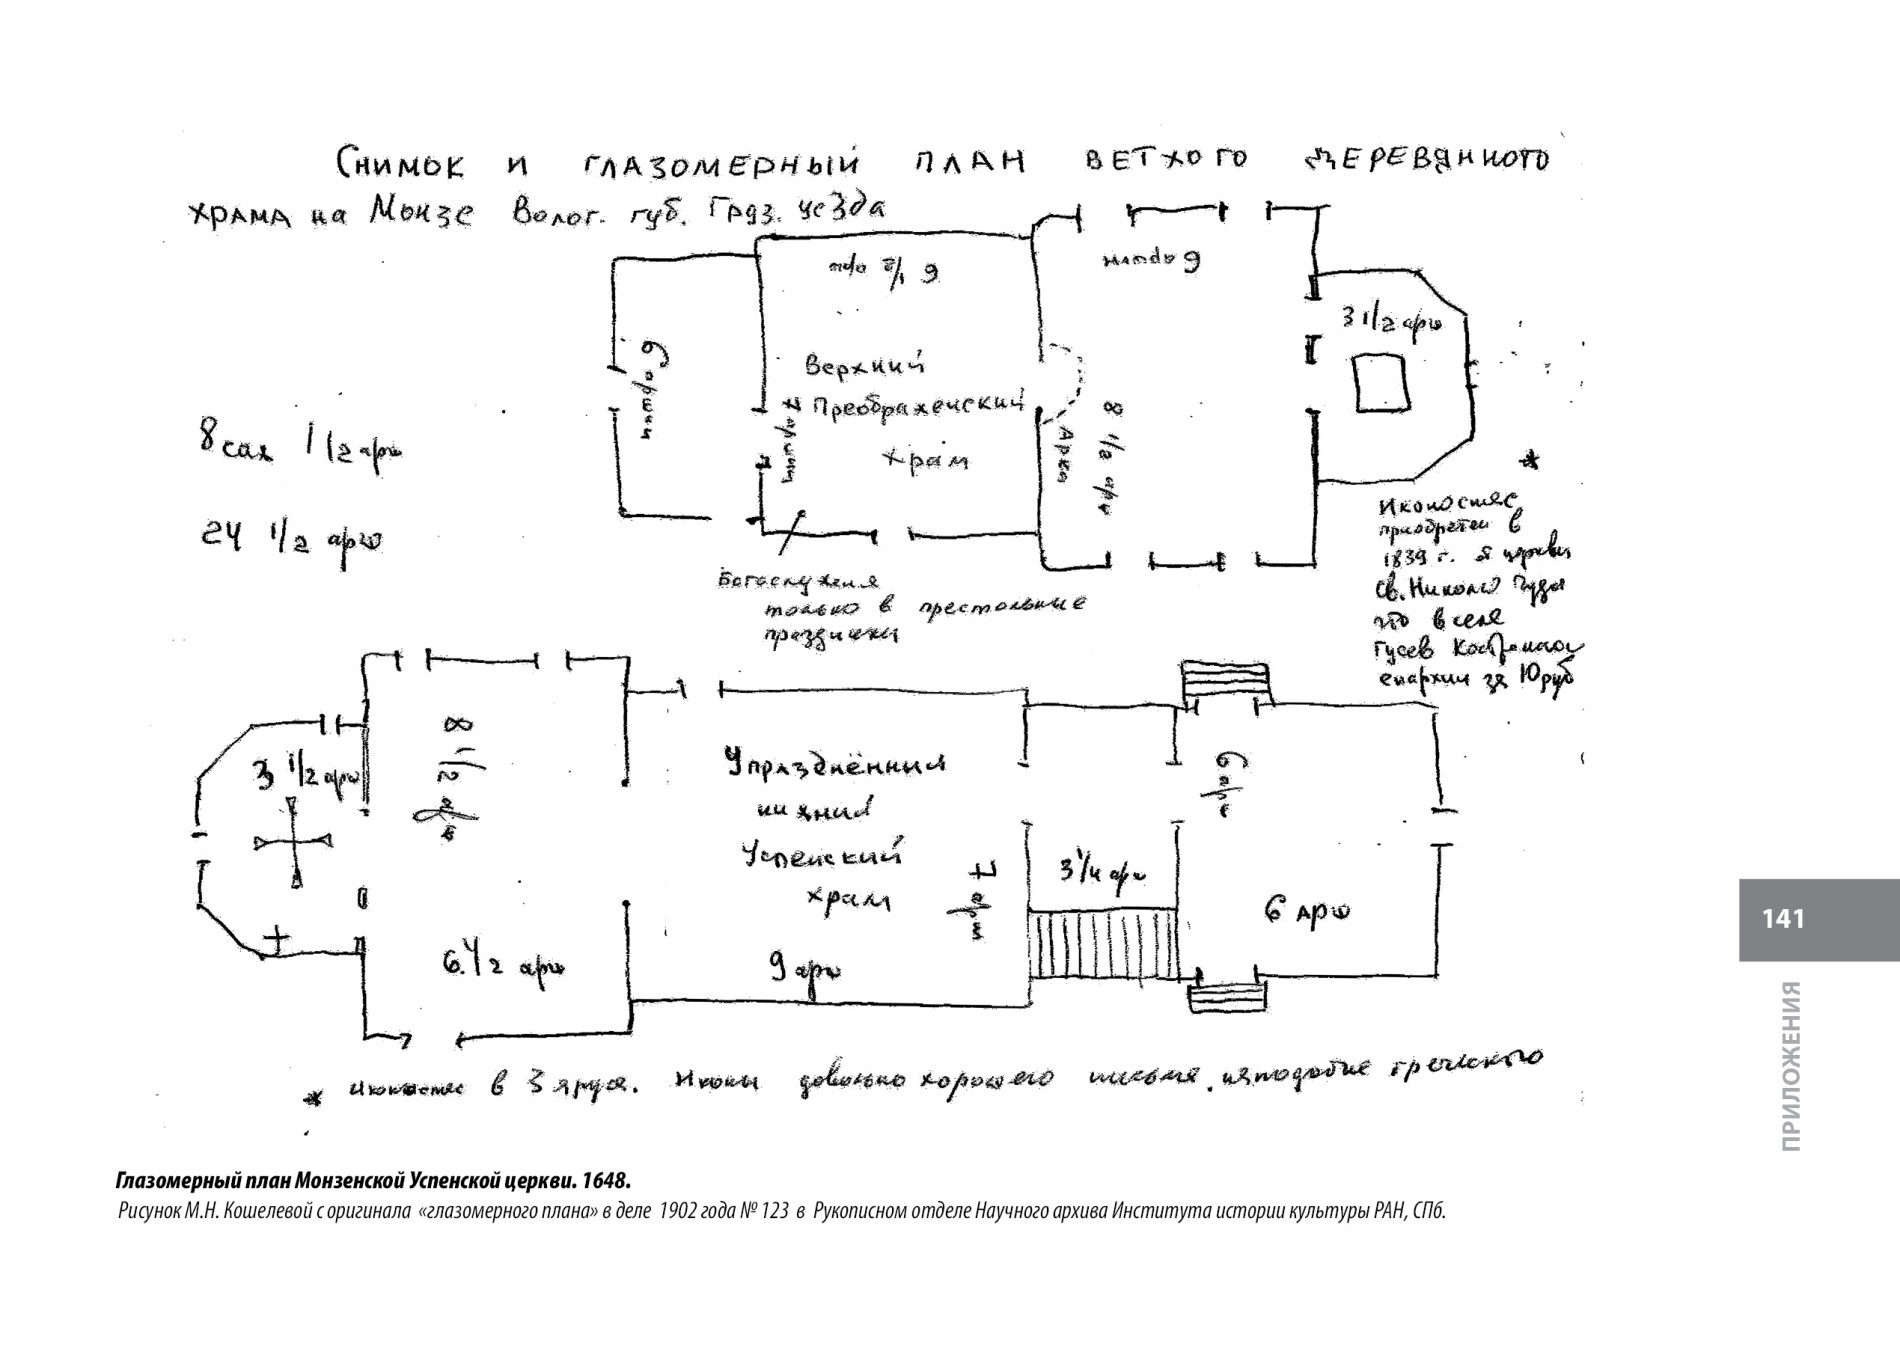 Снимок и глазомерный план ветхого деревянного
храма на Монзе Волог. губ. Гряз. уезда
6 1/2 арш
6 аршин
3 1/2 арш
6 аршин
Верхний
Преображенский
храм
7 аршин
Арка
8 1/2 арш
8 саж 1 1/2 арш
24 1/2 арш
Богослужения
только в престольные
праздники
*
Иконостас
приобретен в
1839 г. я церкви
Св. Николо Чудо
что в селе
Гусев Костромско
епархии за 10 руб
3 1/2 арш
8 1/2 арш
6 1/2 арш
Упразднённый
нижний
Успенский
храм
7 арш
9 арш
3 1/4 арш
6 арш
6 арш
* иконостас в 3 яруса. Иконы довольно хорошего письма, наподобие греческого
Глазомерный план Монзенской Успенской церкви. 1648.
Рисунок М.Н. Кошелевой с оригинала «глазомерного плана» в деле 1902 года № 123 в Рукописном отделе Научного архива Института истории культуры РАН, СПб.
141
ПРИЛОЖЕНИЯ